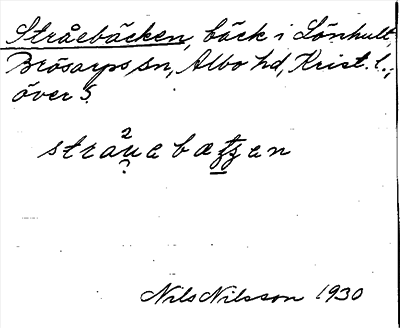 Stråebäcken, bäck i Lönhult,
Brösarps sn, Albo hd, Krist. l.;
över S.
Nils Nilsson 1930